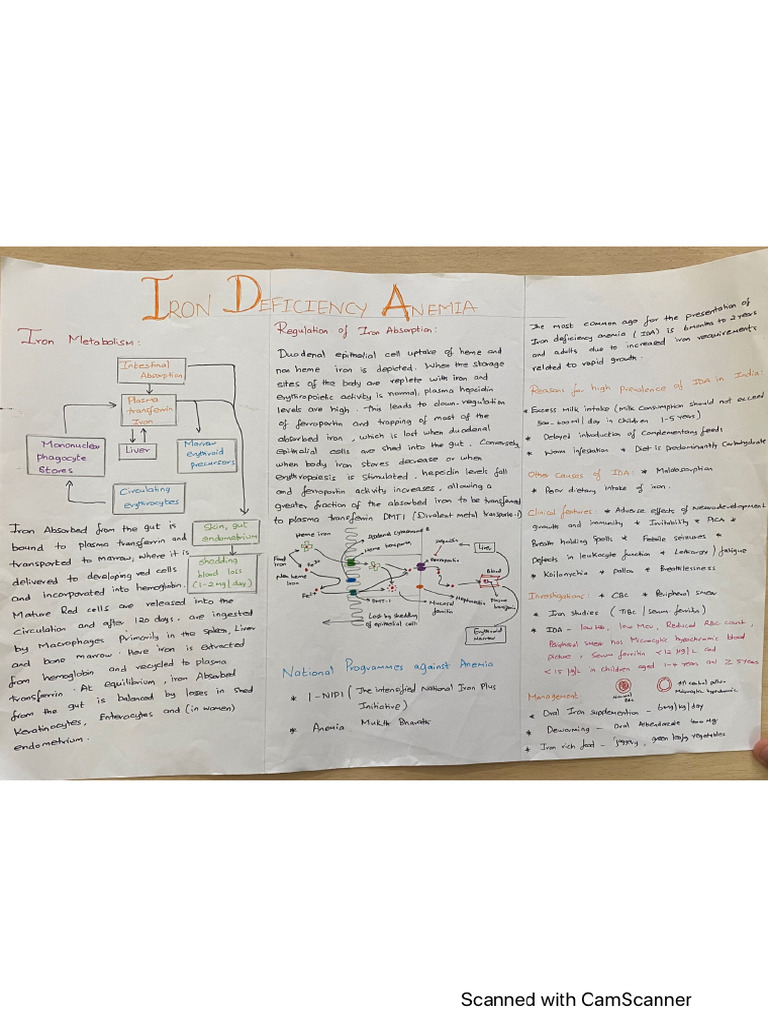 IRON DEFICIENCY ANEMIA
Iron Metabolism:
Intestinal
Absorption
Plasma
transferrin
Iron
Mononuclear
phagocyte
Stores
Liver
Marrow
erythroid
precursors
Circulating
erythrocytes
Skin, gut
endometrium
shedding
blood loss
(1-2 mg/day)
Iron Absorbed from the gut is
bound to plasma transferrin and
transported to marrow, where it is
delivered to developing red cells
and incorporated into hemoglobin.
Mature Red cells are released into the
Circulation and after 120 days, are ingested
by Macrophages Primarily in the Spleen, Liver
and bone marrow. Here iron is Extracted
from hemoglobin and recycled to plasma
transferrin. At equilibrium, iron Absorbed
from the gut is balanced by loses in Shed
Keratinocytes, Enterocytes and (in women)
endometrium.
Regulation of Iron Absorption:
Duodenal epithelial cell uptake of heme and
non heme iron is depicted. When the storage
sites of the body are replete with iron and
erythropoietic activity is normal, plasma hepcidin
levels are high. This leads to down-regulation
of ferroportin and trapping of most of the
absorbed iron, which is lost when duodenal
epithelial cells are shed into the gut. Conversely
when body iron stores decrease or when
erythropoiesis is stimulated, hepcidin levels fall
and ferroportin activity increases, allowing a
greater fraction of the absorbed iron to be transferred
to plasma transferrin DMT1 (Divalent metal transporte-1)
Heme iron
Heme transport
Food
iron
Non heme
iron
Fe3+
Fe2+
DMT-1
Lost by shedding
of epithelial cells
Ferroportin
Hephaestin
Mucosal
ferritin
Liver
Blood
Plasma
transferrin
Erythroid
Marrow
National Programmes against Anemia
* I-NIPI (The intensified National Iron Plus
Initiative)
* Anemia Mukth Bharath
The most common age for the presentation of
Iron deficiency anemia (IDA) is 6months to 2 years
and adults due to increased iron requirements
related to rapid growth.
Reasons for high Prevalence of IDA in India:
* Excess Milk intake (Milk Consumption should not exceed
500-600ml/day in children 1-5 years)
* Delayed introduction of Complementary feeds
* Worm infestation * Diet is Predominantly Carbohydrate
Other Causes of IDA: * Malabsorption
* Poor dietary intake of iron.
Clinical features: * Adverse effects of Neurodevelopment
growth and immunity * Irritability * PICA *
Breath holding Spells * Febrile seizures *
Defects in leukocyte function * Lethargy/fatigue
* Koilonychia * pallor * Breathlessness
Investigations: * CBC * Peripheral smear
* Iron studies (TIBC/serum ferritin)
* IDA - low Hb, low MCV, Reduced RBC count,
Peripheral smear has Microcytic hypochromic blood
picture, Serum ferritin <12 µg/L and
<15 µg/L in children aged 1-4 years and ≥ 5 years
Normal
RBC
Microcytic hypochromic
Management
* Oral Iron supplemention - 6mg/kg/day
* Deworming - Oral Albendazole 400 Mg
* Iron rich food - jaggery, green leafy vegetables
Scanned with CamScanner